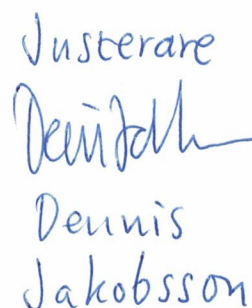 Justerare
Dennis
Jakobsson